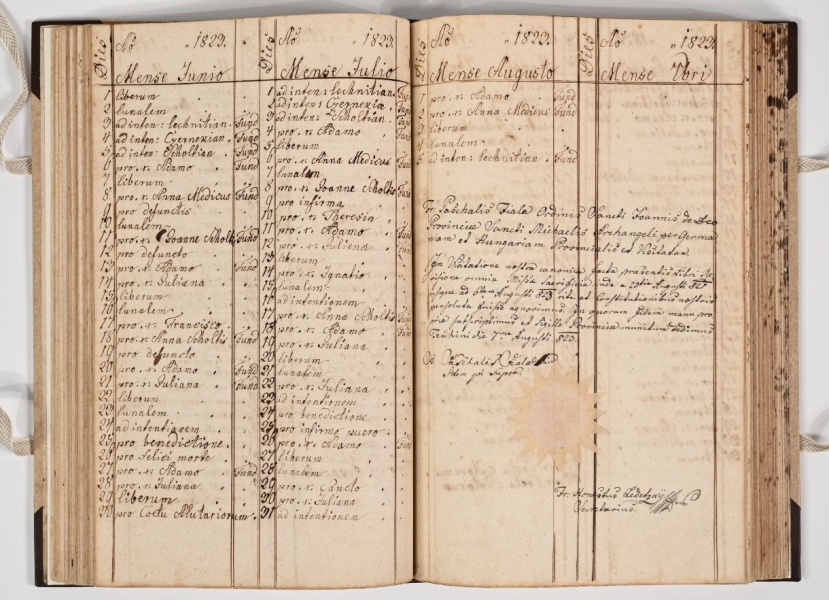 Dies Aõ „ 1823.
Mense Junio
1 liberum
2 lunalem
3 ad inten: lechnitian. Fund
4 ad inten: Cÿernexian. Fund
5 ad inten: Scholtian Fund
6 pro. r. Adamo Fund
7 liberum
8 pro. r. Anna Medicus Fund
9 pro defunctis
10 lunalem
11 pro. r. Joanne Scholtz Fund
12 pro defuncto
13 pro. r. Adamo Fund
14 pro. r. Juliana
15 liberum
16 lunalem
17 pro. r. Francisco
18 pro. r. Anna Scholtis Fund
19 pro defuncto
20 pro. r. Adamo Fund
21 pro. r. Juliana Fund
22 liberum
23 lunalem
24 ad intentionem
25 pro benedictione
26 pro felici morte
27 pro. r. Adamo Fund
28 pro. r. Juliana
29 liberum
30 pro Coetu Alutariorum
Dies Aõ „ 1823.
Mense Julio
1 ad inten: lechnitian. Fund
2 ad inten: Cyernexia. Fund
3 ad inten: Scholtian. Fund
4 pro. r. Adamo Fund
5 liberum
6 pro. r. Anna Medicus Fund
7 lunalem
8 pro. r. Joanne Scholtis Fund
9 pro infirma
10 pro. r. Theresia
11 pro. r. Adamo Fund
12 pro. r. Juliana Fund
13 liberum
14 pro. r. Ignatio
15 lunalem
16 ad intentionem
17 pro. r. Anna Scholtis Fund
18 pro. r. Adamo Fund
19 pro. r. Juliana
20 liberum
21 lunalem
22 pro. r. Juliana
23 ad intentionem
24 pro benedictione
25 pro infirmo puero
26 pro. r. Adamo Fund
27 liberum
28 lunalem
29 pro. r. Cuncto
30 pro. r. Juliana
31 ad intentionem
Dies Aõ „ 1823.
Mense Augusto
1 pro. r. Adamo Fund
2 pro. r. Anna Medicus Fund
3 liberum
4 lunalem
5 ad inten: lechnitian Fund
Fr. Paschalis Fiala Ordinis Sancti Joannis de Deo
Provinciæ Sancti Michaelis Archangeli per Germa
niam et Hungariam Provincialis et Visitator
In Visitatione nostra canonica facta præsentis libri
omnia Missæ sacrificia inde a Augusti
usque ad Augusti 823 rite et Constitutionibus nostris
persoluta fuisse agnovimus. In quorum fidem manu pro
pria subscripsimus et Sigillo Provinciæ munitum dedimus
Teschini die Augusti 823.
Paschalis Fiala
Idem qui Supra.
Fr. Honestus
Secretarius.
Dies Aõ 1823
Mense 7bri